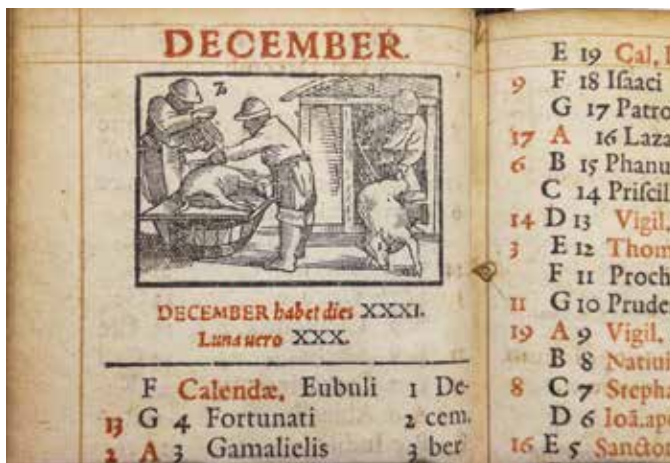 DECEMBER.
DECEMBER habet dies XXXI.
Luna uero XXX.
F Calendæ, Eubuli 1 De-
13 G 4 Fortunati 2 cem.
2 A 3 Gamalielis 3 ber
E 19 Cal.
9 F 18 Iſaaci
G 17 Patro
17 A 16 Laza
6 B 15 Phanu
C 14 Priſcil
14 D 13 Vigil.
3 E 12 Thom
F 11 Proch
11 G 10 Prude
19 A 9 Vigil.
B 8 Natiui
8 C 7 Steph
D 6 Ioã.apo
16 E 5 Sancto